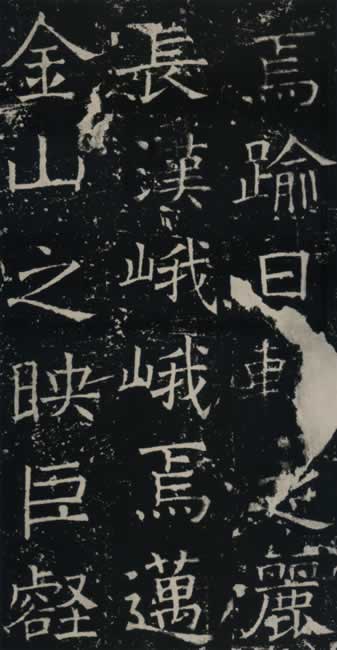 焉踰日車之麗
長漢峨峨焉邁
金山之映臣壑